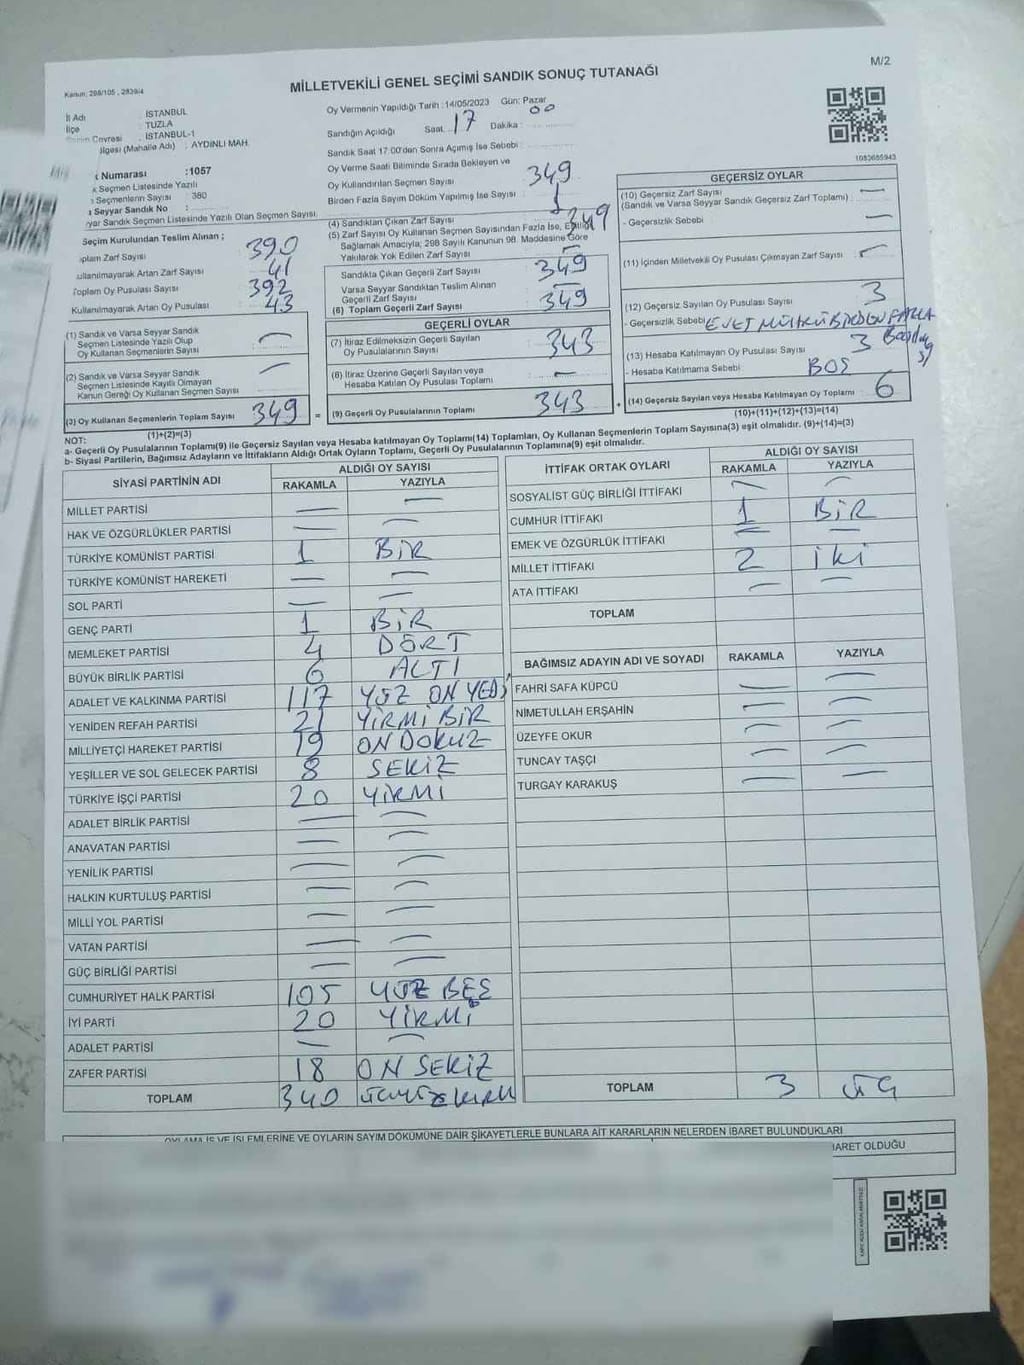 M/2
MİLLETVEKİLİ GENEL SEÇİMİ SANDIK SONUÇ TUTANAĞI
Kanun: 298/105 , 2839/4
İl Adı : İSTANBUL
İlçe : TUZLA
Çevresi : İSTANBUL-1
lgesi (Mahalle Adı) : AYDINLI MAH.
Numarası :1057
Seçmen Listesinde Yazılı
Seçmenlerin Sayısı : 380
Seyyar Sandık No :
yar Sandık Seçmen Listesinde Yazılı Olan Seçmen Sayısı
Seçim Kurulundan Teslim Alınan ;
oplam Zarf Sayısı 390
ullanılmayarak Artan Zarf Sayısı 41
Toplam Oy Pusulası Sayısı 392
Kullanılmayarak Artan Oy Pusulası 43
(1) Sandık ve Varsa Seyyar Sandık
Seçmen Listesinde Yazılı Olup
Oy Kullanan Seçmenlerin Sayısı —
(2) Sandık ve Varsa Seyyar Sandık
Seçmen Listesinde Kayıtlı Olmayan
Kanun Gereği Oy Kullanan Seçmen Sayısı —
(3) Oy Kullanan Seçmenlerin Toplam Sayısı 349 =
(1)+(2)=(3)
Oy Vermenin Yapıldığı Tarih :14/05/2023 Gün: Pazar
Sandığın Açıldığı Saat 17 Dakika : 00
Sandık Saat 17:00'den Sonra Açımış İse Sebebi :
Oy Verme Saati Bitiminde Sırada Bekleyen ve
Oy Kullandırılan Seçmen Sayısı 349
Birden Fazla Sayım Döküm Yapılmış İse Sayısı :
(4) Sandıktan Çıkan Zarf Sayısı 349
(5) Zarf Sayısı Oy Kullanan Seçmen Sayısından Fazla İse, Eşitliği
Sağlamak Amacıyla; 298 Sayılı Kanunun 98. Maddesine Göre
Yakılarak Yok Edilen Zarf Sayısı —
Sandıkta Çıkan Geçerli Zarf Sayısı 349
Varsa Seyyar Sandıktan Teslim Alınan
Geçerli Zarf Sayısı —
(6) Toplam Geçerli Zarf Sayısı 349
GEÇERLİ OYLAR
(7) İtiraz Edilmeksizin Geçerli Sayılan
Oy Pusulalarının Sayısı 343
(8) İtiraz Üzerine Geçerli Sayılan veya
Hesaba Katılan Oy Pusulası Toplamı —
(9) Geçerli Oy Pusulalarının Toplamı 343 +
1083685943
GEÇERSİZ OYLAR
(10) Geçersiz Zarf Sayısı —
(Sandık ve Varsa Seyyar Sandık Geçersiz Zarf Toplamı) :
- Geçersizlik Sebebi —
(11) İçinden Milletvekili Oy Pusulası Çıkmayan Zarf Sayısı : —
(12) Geçersiz Sayılan Oy Pusulası Sayısı 3
- Geçersizlik Sebebi EVET MÜHRÜ BİRDEN FAZLA
(13) Hesaba Katılmayan Oy Pusulası Sayısı 3
- Hesaba Katılmama Sebebi BOŞ
(14) Geçersiz Sayılan veya Hesaba Katılmayan Oy Toplamı 6
(10)+(11)+(12)+(13)=(14)
NOT:
a- Geçerli Oy Pusulalarının Toplamı(9) ile Geçersiz Sayılan veya Hesaba katılmayan Oy Toplamı(14) Toplamları, Oy Kullanan Seçmenlerin Toplam Sayısına(3) eşit olmalıdır. (9)+(14)=(3)
b- Siyasi Partilerin, Bağımsız Adayların ve İttifakların Aldığı Ortak Oyların Toplamı, Geçerli Oy Pusulalarının Toplamına(9) eşit olmalıdır.
SİYASİ PARTİNİN ADI ALDIĞI OY SAYISI
RAKAMLA YAZIYLA
MİLLET PARTİSİ — —
HAK VE ÖZGÜRLÜKLER PARTİSİ — —
TÜRKİYE KOMÜNİST PARTİSİ 1 BİR
TÜRKİYE KOMÜNİST HAREKETİ — —
SOL PARTİ — —
GENÇ PARTİ 1 BİR
MEMLEKET PARTİSİ 4 DÖRT
BÜYÜK BİRLİK PARTİSİ 6 ALTI
ADALET VE KALKINMA PARTİSİ 117 YÜZ ON YEDİ
YENİDEN REFAH PARTİSİ 21 YİRMİ BİR
MİLLİYETÇİ HAREKET PARTİSİ 19 ON DOKUZ
YEŞİLLER VE SOL GELECEK PARTİSİ 8 SEKİZ
TÜRKİYE İŞÇİ PARTİSİ 20 YİRMİ
ADALET BİRLİK PARTİSİ — —
ANAVATAN PARTİSİ — —
YENİLİK PARTİSİ — —
HALKIN KURTULUŞ PARTİSİ — —
MİLLİ YOL PARTİSİ — —
VATAN PARTİSİ — —
GÜÇ BİRLİĞİ PARTİSİ — —
CUMHURİYET HALK PARTİSİ 105 YÜZ BEŞ
İYİ PARTİ 20 YİRMİ
ADALET PARTİSİ — —
ZAFER PARTİSİ 18 ON SEKİZ
TOPLAM 340
İTTİFAK ORTAK OYLARI ALDIĞI OY SAYISI
RAKAMLA YAZIYLA
SOSYALİST GÜÇ BİRLİĞİ İTTİFAKI — —
CUMHUR İTTİFAKI 1 BİR
EMEK VE ÖZGÜRLÜK İTTİFAKI — —
MİLLET İTTİFAKI 2 İKİ
ATA İTTİFAKI — —
TOPLAM
BAĞIMSIZ ADAYIN ADI VE SOYADI RAKAMLA YAZIYLA
FAHRİ SAFA KÜPCÜ — —
NİMETULLAH ERŞAHİN — —
ÜZEYFE OKUR — —
TUNCAY TAŞÇI — —
TURGAY KARAKUŞ — —
TOPLAM 3 ÜÇ
OYLAMA İŞ VE İŞLEMLERİNE VE OYLARIN SAYIM DÖKÜMÜNE DAİR ŞİKAYETLERLE BUNLARA AİT KARARLARIN NELERDEN İBARET BULUNDUKLARI
BARET OLDUĞU